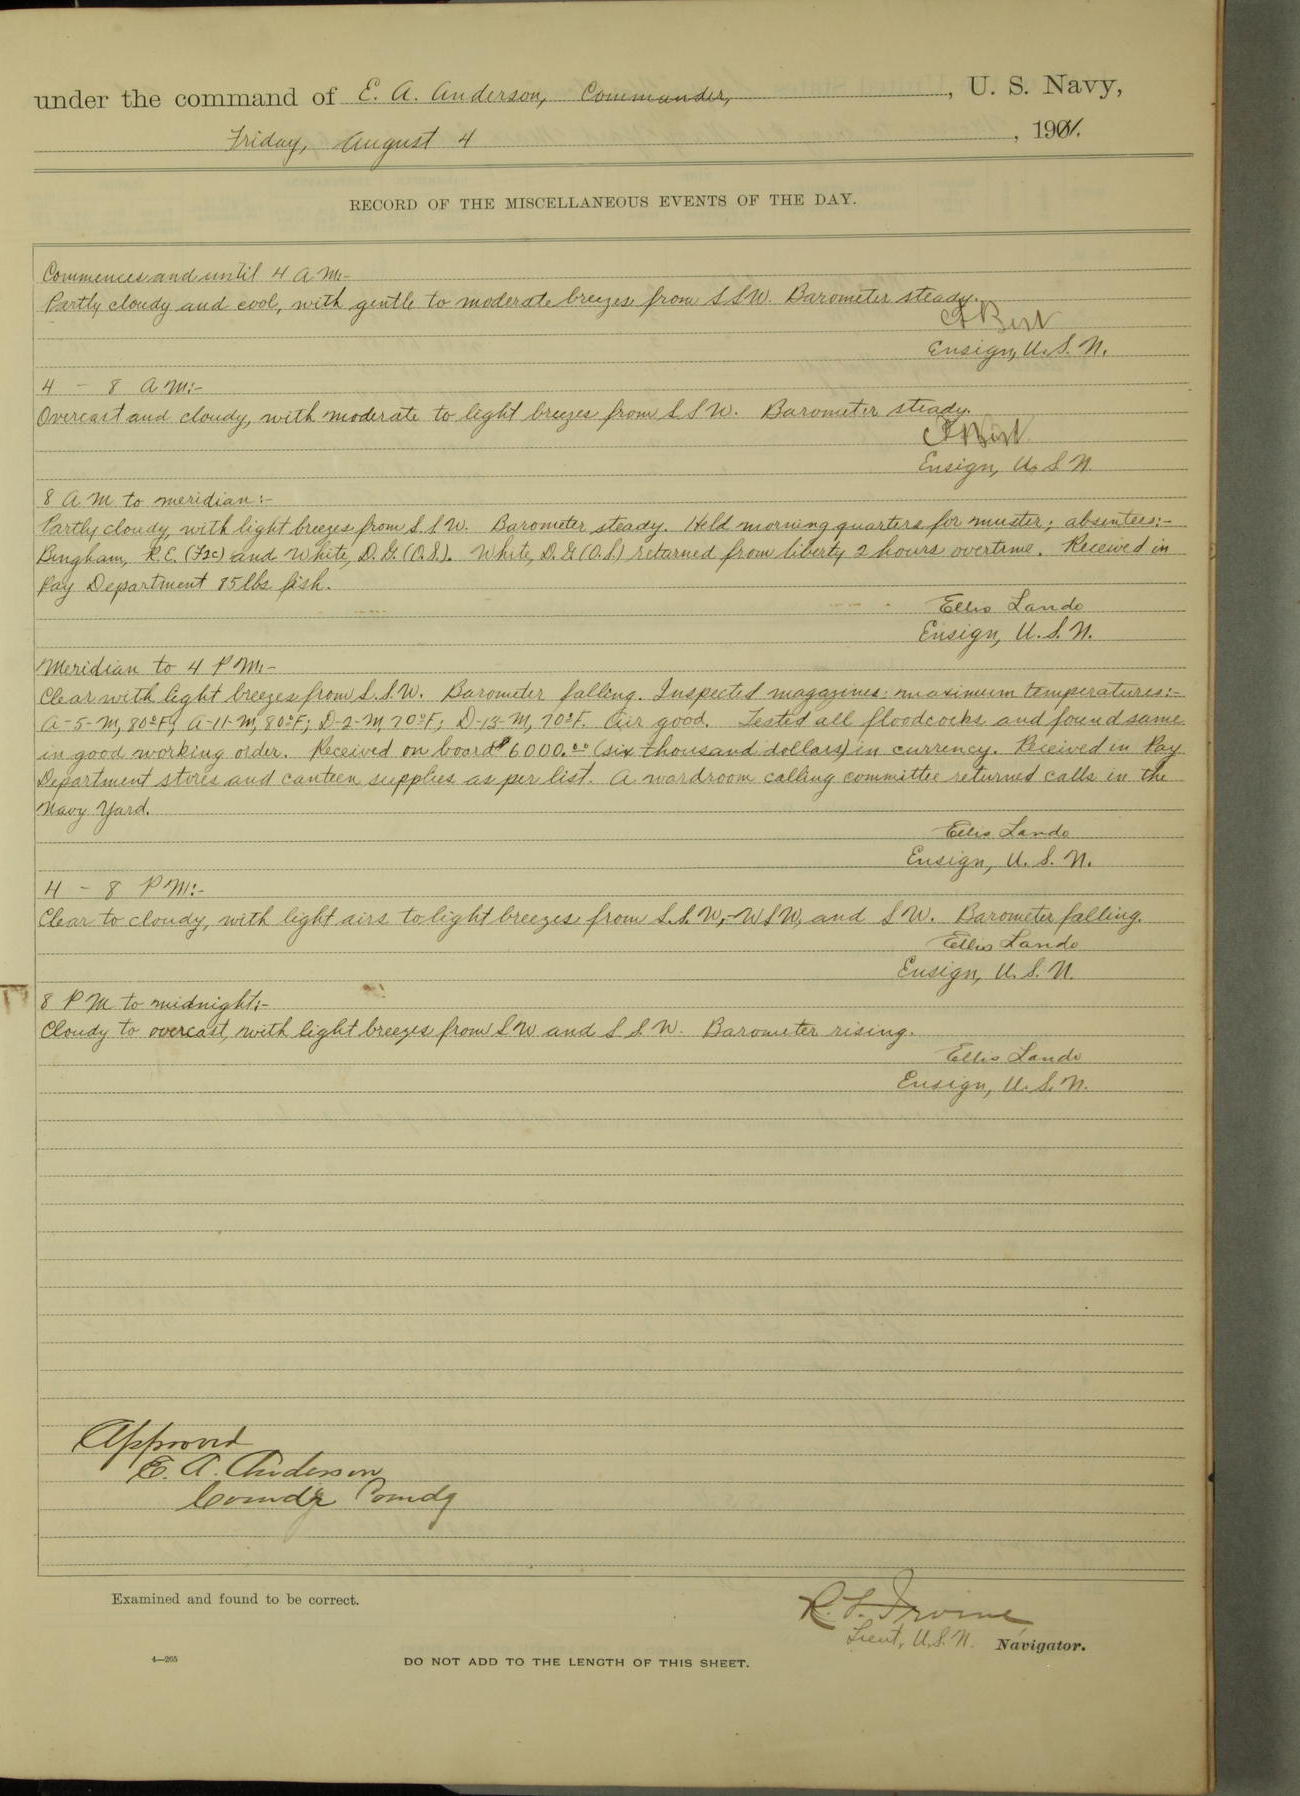 under the command of E. A. Anderson, Commander, , U. S. Navy,
Friday, August 4 , 1901.
RECORD OF THE MISCELLANEOUS EVENTS OF THE DAY.
Commences and until 4 A M:-
Partly cloudy and cool, with gentle to moderate breezes from SSW. Barometer steady.
Ensign, U. S. N.
4 - 8 A M:-
Overcast and cloudy, with moderate to light breezes from S S W. Barometer steady.
Ensign, U. S. N.
8 A M to meridian:-
Partly cloudy, with light breezes from S. S W. Barometer steady. Held morning quarters for muster; absentees:-
Bingham, R. E. (F2c) and White, D. G. (O.S.). White, D. G (O.S) returned from liberty 2 hours overtime. Received in
Pay Department 85 lbs fish.
Ellis Lando
Ensign, U. S. N.
Meridian to 4 P M:-
Clear with light breezes from S. S. W. Barometer falling. Inspected magazines: maximum temperatures:-
A-5-M, 80°F; A-11-M, 80°F; D-2-M, 70°F; D-13-M, 70°F. Air good. Tested all floodcocks and found same
in good working order. Received on board $6000.00 (six thousand dollars) in currency. Received in Pay
Department stores and canteen supplies as per list. A wardroom calling committee returned calls in the
Navy Yard.
Ellis Lando
Ensign, U. S. N.
4 - 8 P M:-
Clear to cloudy, with light airs to light breezes from S. S. W,- W S W, and S W. Barometer falling.
Ellis Lando
Ensign, U. S. N.
8 P M to midnight:-
Cloudy to overcast, with light breezes from S W and S S W. Barometer rising.
Ellis Lando
Ensign, U. S. N.
Approved
E. A. Anderson
Comdr Comdg
Examined and found to be correct.
Irvine
Lieut, U.S.N. Navigator.
4—265
DO NOT ADD TO THE LENGTH OF THIS SHEET.